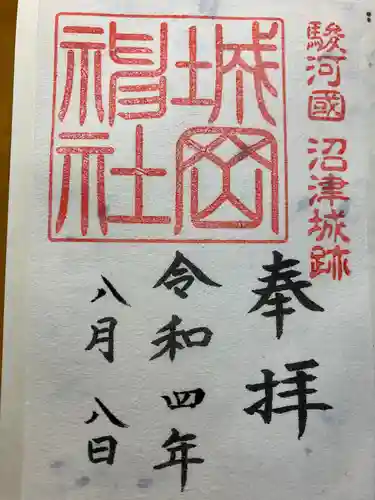 駿河國 沼津城跡
城岡神社
奉拝
令和四年
八月八日